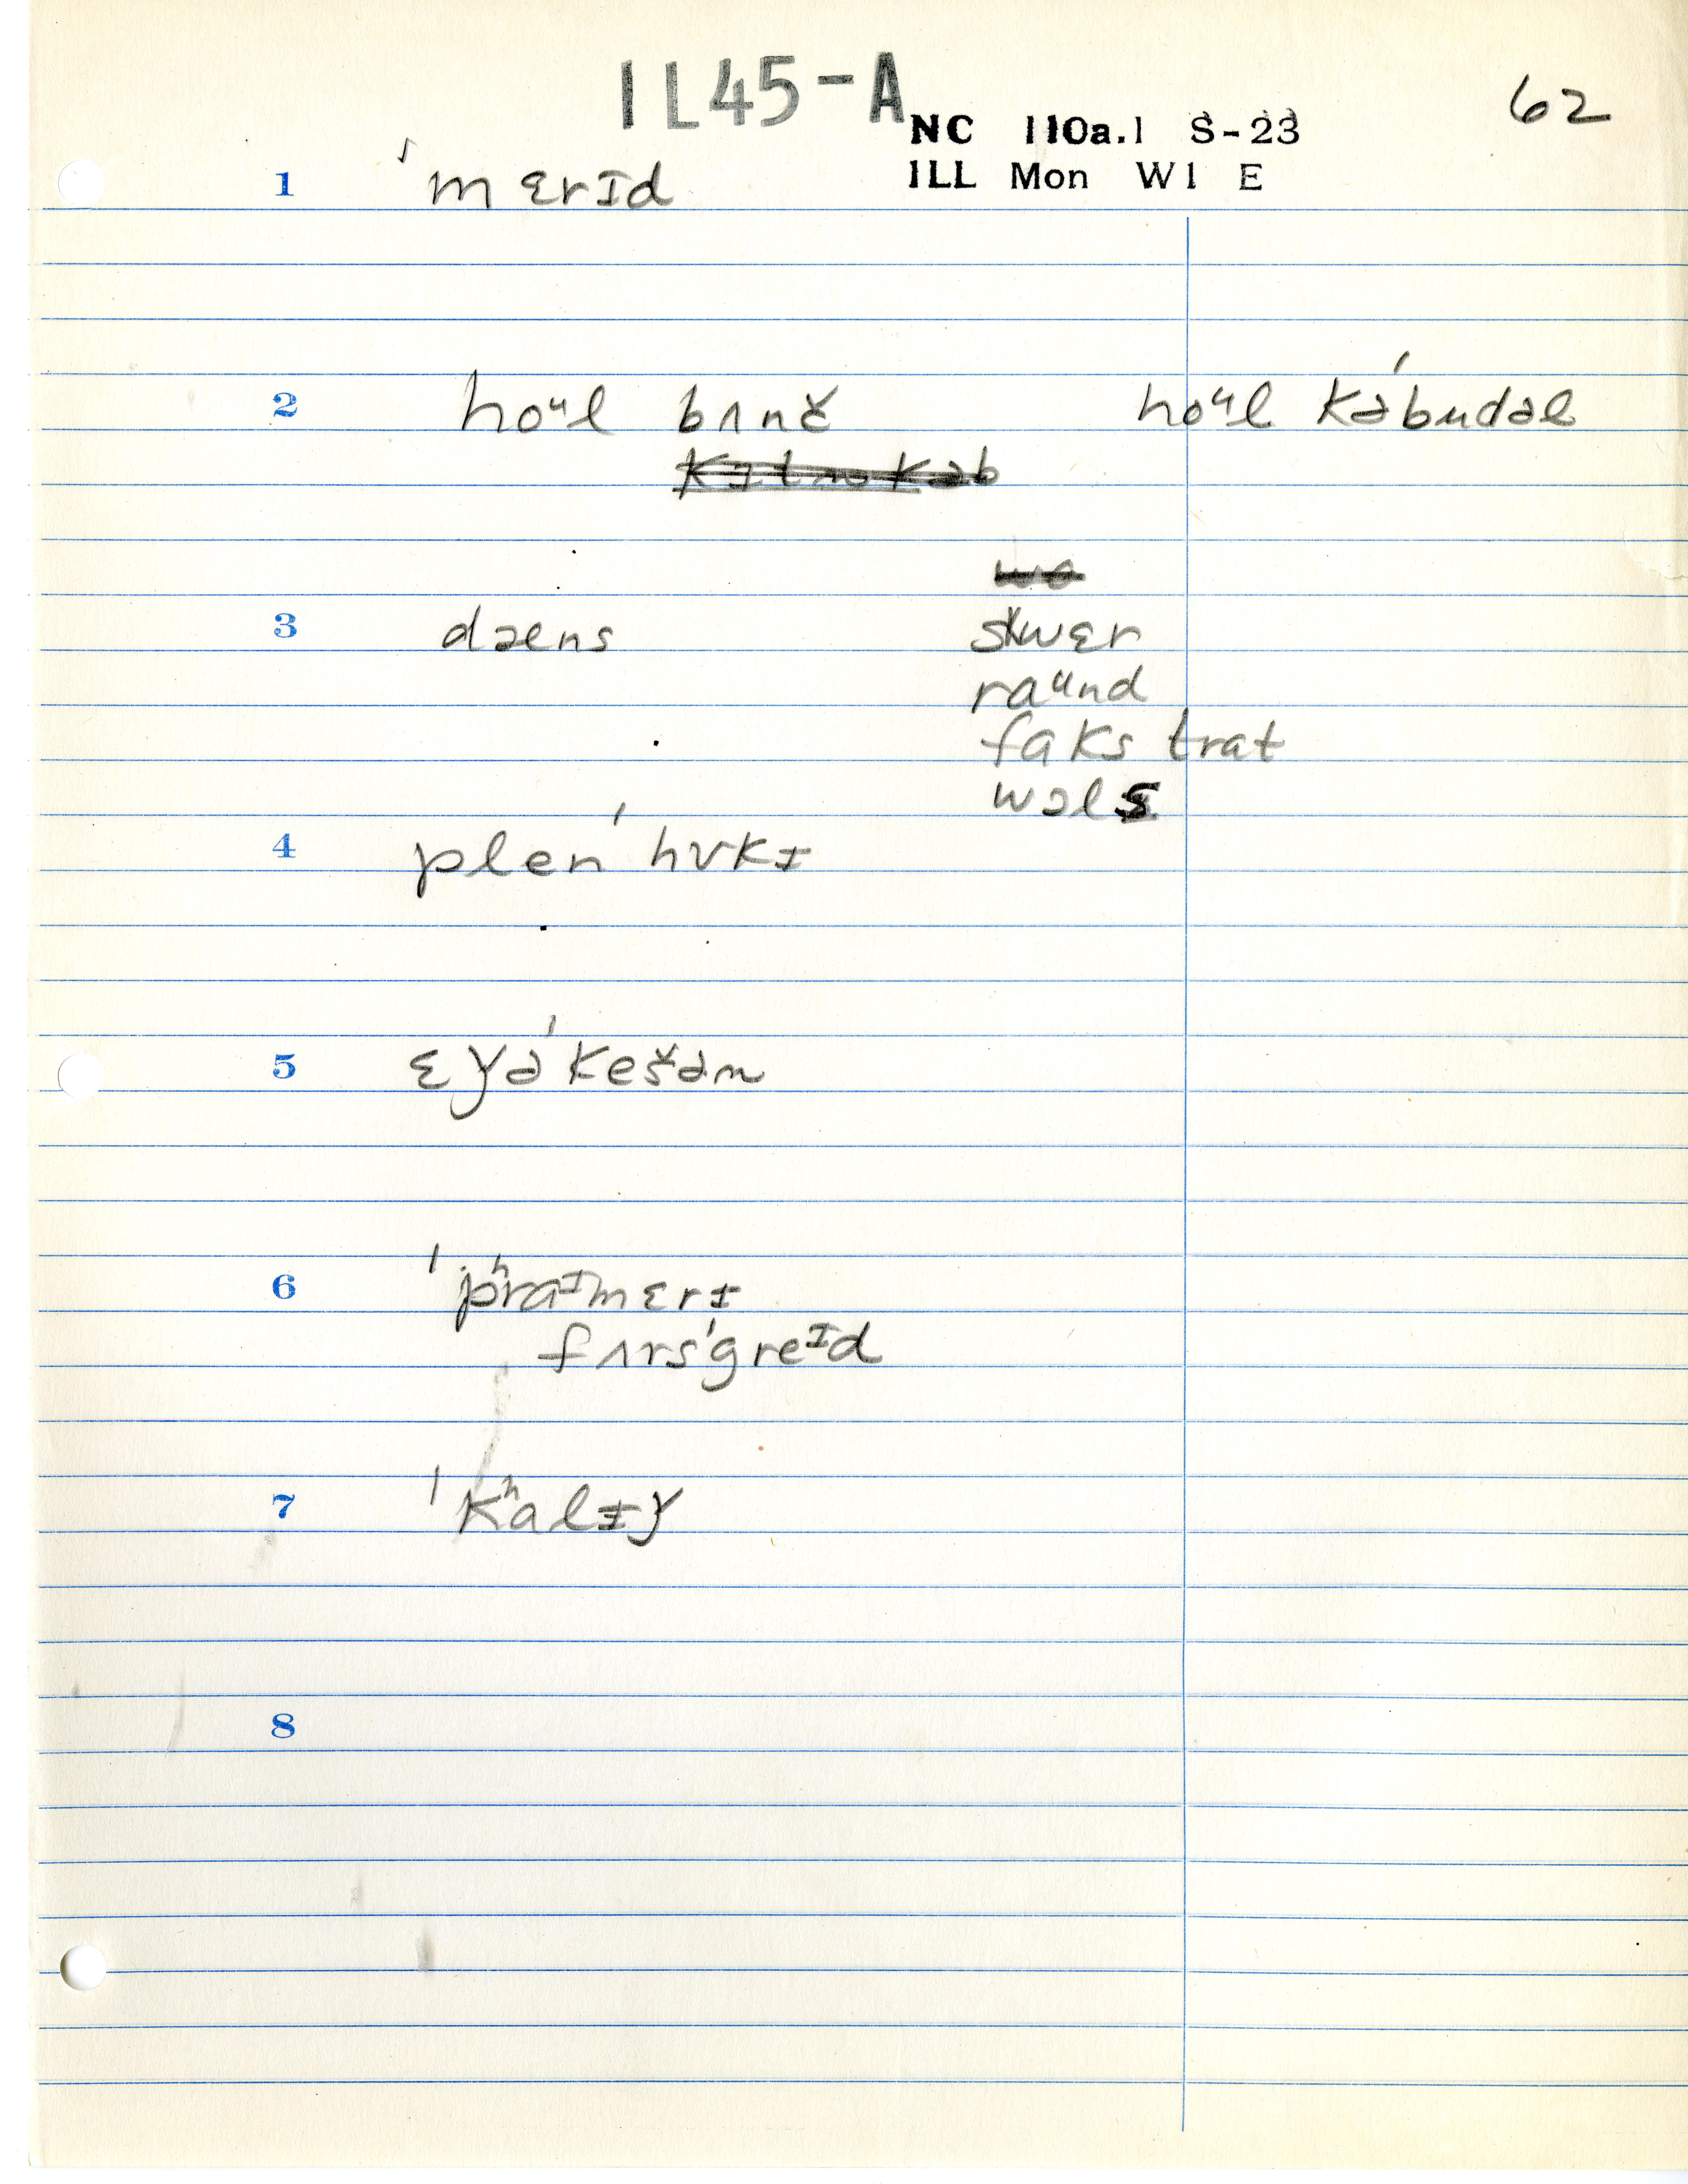 IL45-A
NC 110a.1 S-23
62
ILL Mon W1 E
1 ˈmɛrɪd
2 hoᵘl bʌnč hoᵘl kəˈbudəl
3 dæns skwɛr
raᵘnd
faks trat
wɔls
4 plen ˈhʊkɪ
5 ɛyəˈkešən
6 ˈpʰraᴵmɛrɪ
fʌrsˈgreᴵd
7 ˈkʰalɪǰ
8